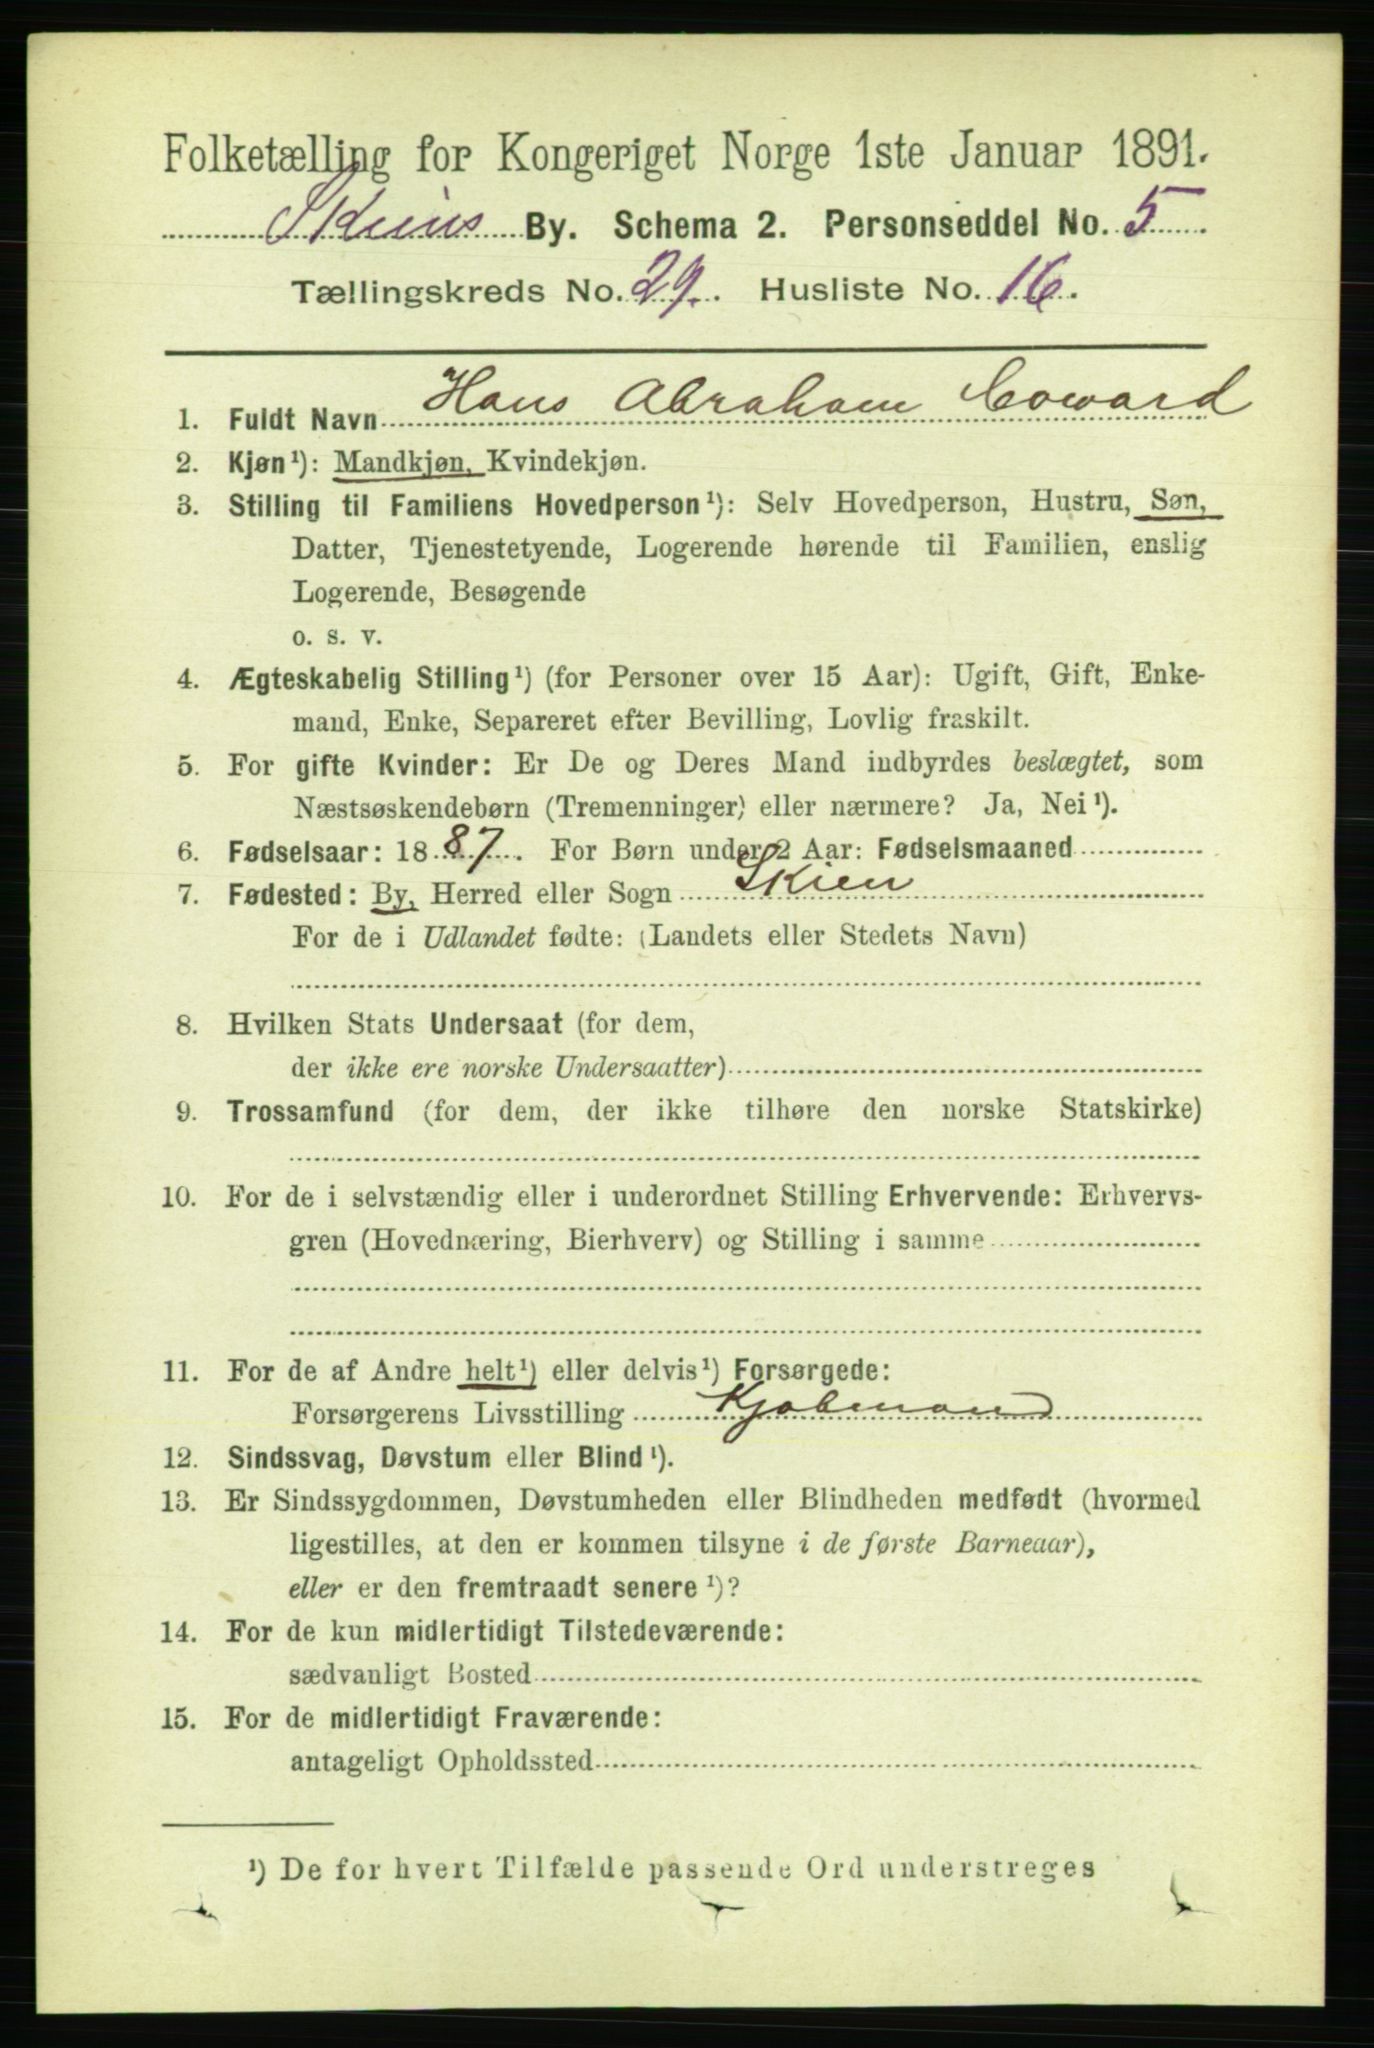 Folketælling for Kongeriget Norge 1ste Januar 1891.
Skiens By. Schema 2. Personseddel No. 5
Tællingskreds No. 29. Husliste No. 16.
1. Fuldt Navn Hans Abraham Coward
2. Kjøn¹): Mandkjøn, Kvindekjøn.
3. Stilling til Familiens Hovedperson¹): Selv Hovedperson, Hustru, Søn,
Datter, Tjenestetyende, Logerende hørende til Familien, enslig
Logerende, Besøgende
o. s. v.
4. Ægteskabelig Stilling¹) (for Personer over 15 Aar): Ugift, Gift, Enke-
mand, Enke, Separeret efter Bevilling, Lovlig fraskilt.
5. For gifte Kvinder: Er De og Deres Mand indbyrdes beslægtet, som
Næstsøskendebørn (Tremenninger) eller nærmere? Ja, Nei¹).
6. Fødselsaar: 1887. For Børn under 2 Aar: Fødselsmaaned
7. Fødested: By, Herred eller Sogn Skien
For de i Udlandet fødte: (Landets eller Stedets Navn)
8. Hvilken Stats Undersaat (for dem,
der ikke ere norske Undersaatter)
9. Trossamfund (for dem, der ikke tilhøre den norske Statskirke)
10. For de i selvstændig eller i underordnet Stilling Erhvervende: Erhvervs-
gren (Hovednæring, Bierhverv) og Stilling i samme
11. For de af Andre helt¹) eller delvis¹) Forsørgede:
Forsørgerens Livsstilling Kjøbmand
12. Sindssvag, Døvstum eller Blind¹).
13. Er Sindssygdommen, Døvstumheden eller Blindheden medfødt (hvormed
ligestilles, at den er kommen tilsyne i de første Barneaar),
eller er den fremtraadt senere¹)?
14. For de kun midlertidigt Tilstedeværende:
sædvanligt Bosted
15. For de midlertidigt Fraværende:
antageligt Opholdssted
¹) De for hvert Tilfælde passende Ord understreges